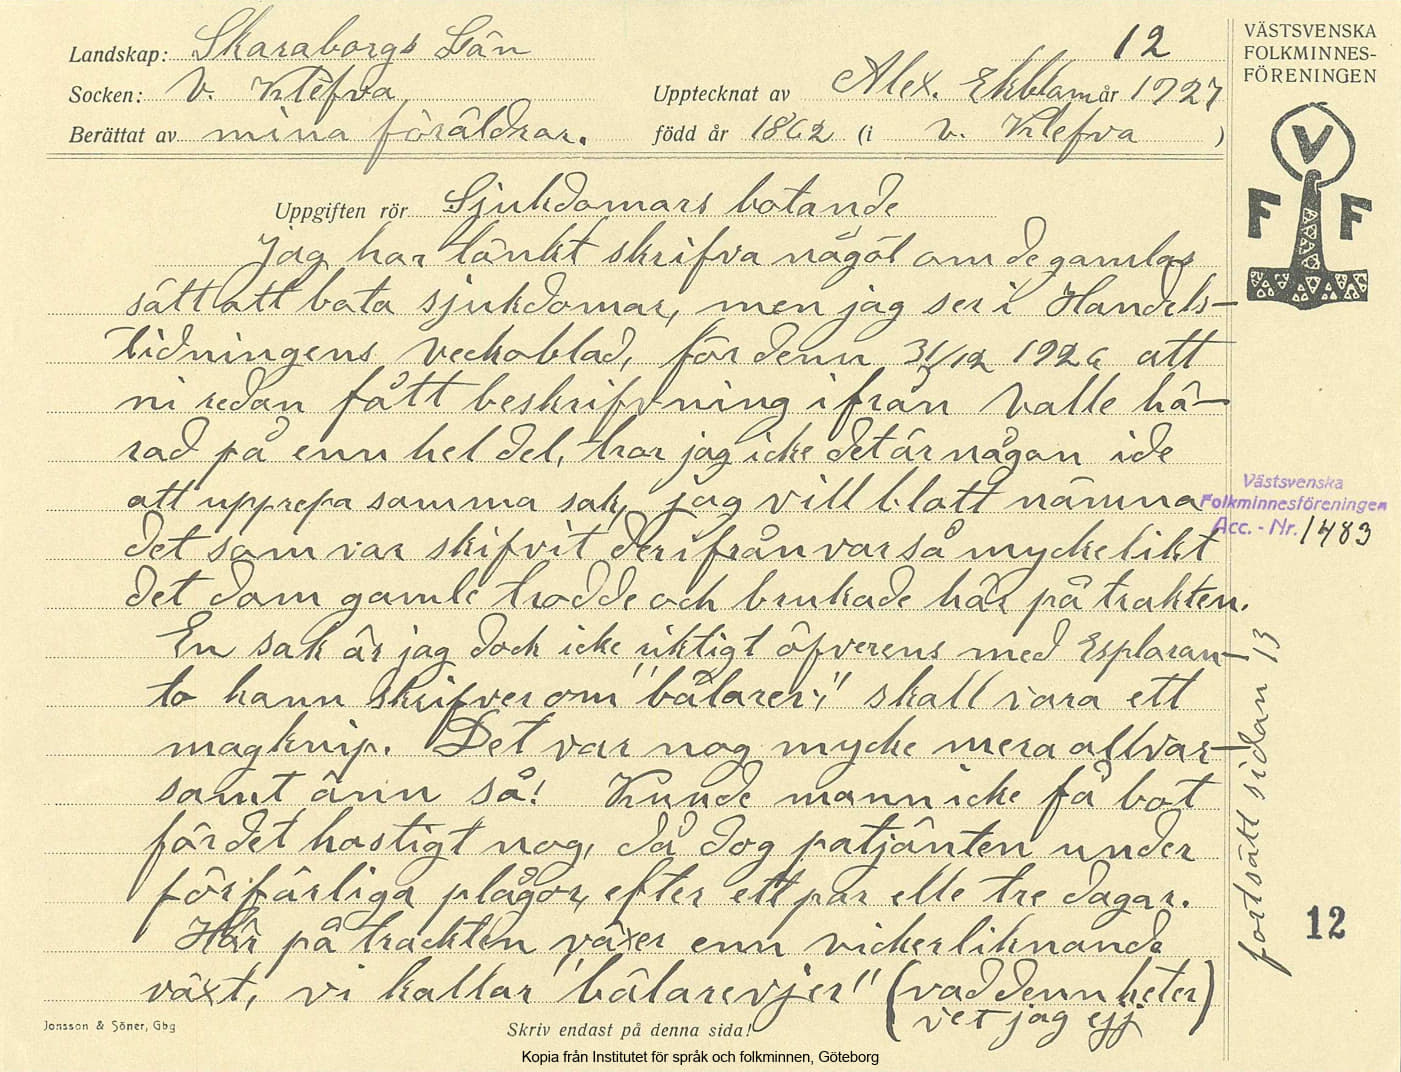 12
VÄSTSVENSKA
FOLKMINNES-
FÖRENINGEN
Landskap: Skaraborgs Län
Socken: V. Klefva
Upptecknat av Alex. Ekblam år 1927
Berättat av mina föräldrar.
född år 1862 (i V. Klefva)
V
F F
Uppgiften rör Sjukdomars botande
Jag har tänkt skrifva något om de gamlas
sätt att bota sjukdomar, men jag ser i Handels-
tidningens Veckoblad, för denn 31/12 1926 att
ni redan fått beskrifvning ifrån Valle hä-
rad på enn hel del, tror jag icke det är någon ide
att upprepa samma sak, jag vill blott nämna
det som var skifvit derifrån var så mycke likt
det dom gamle trodde och brukade här på trakten.
En sak är jag dock icke riktigt öfverens med Esplaran-
to hann skrifver om "bålarer," skall vara ett
magknip. Det var nog mycke mera allvar-
samt änn så! Kunde mann icke få bot
för det hastigt nog, då dog patjänten under
förfärliga plågor, efter ett par elle tre dagar.
Här på trackten växer enn vickerliknande
växt, vi kallar "bålarevjer" (vad denn heter
vet jag ejj)
Västsvenska
Folkminnesföreningen
Acc. - Nr. 1483
fortsätt sidan 13
12
Jonsson & Söner, Gbg
Skriv endast på denna sida!
Kopia från Institutet för språk och folkminnen, Göteborg